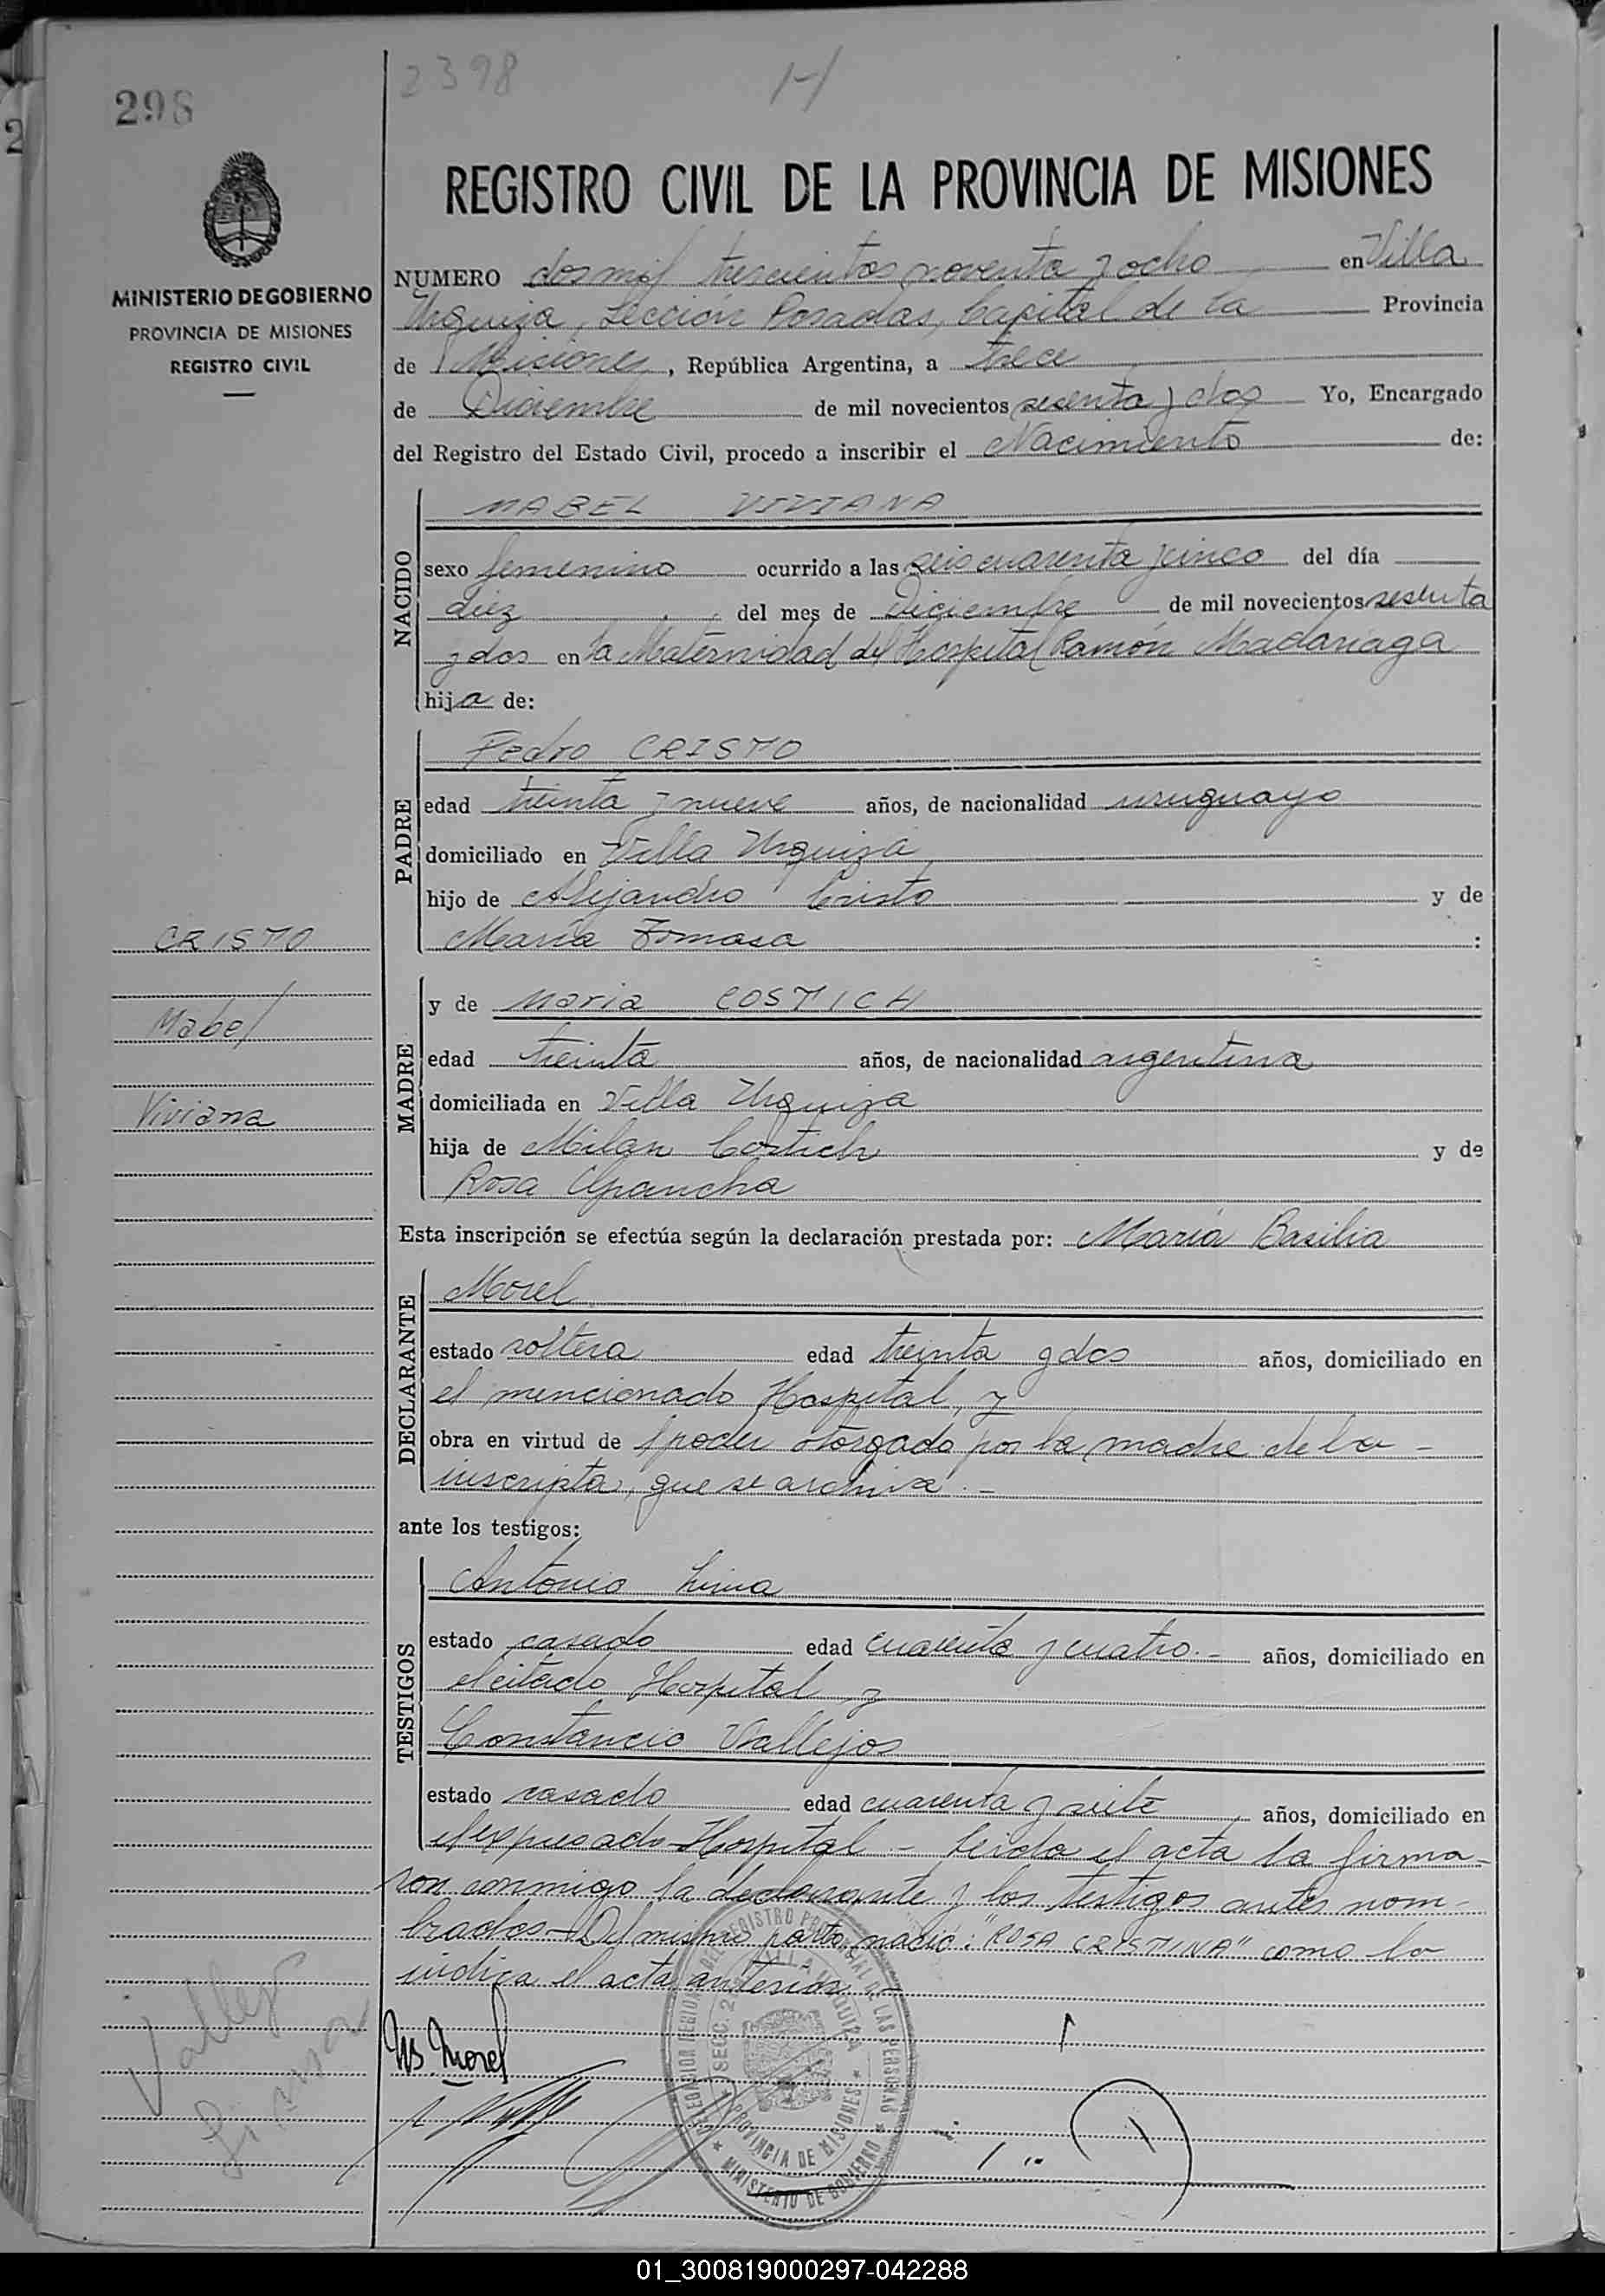 298
2398
H
REGISTRO CIVIL DE LA PROVINCIA DE MISIONES
MINISTERIO DE GOBIERNO
PROVINCIA DE MISIONES
REGISTRO CIVIL
NUMERO dos mil trescientos noventa y ocho en Villa
Urquiza, Sección Posadas, Capital de la Provincia
de Misiones, República Argentina, a trece
de Diciembre de mil novecientos sesenta y dos Yo, Encargado
del Registro del Estado Civil, procedo a inscribir el Nacimiento de:
NACIDO
MABEL VIVIANA
sexo femenino ocurrido a las seis cuarenta y cinco del día
diez del mes de Diciembre de mil novecientos sesenta
y dos en la Maternidad del Hospital Ramón Madariaga
hija de:
PADRE
Pedro CRISTO
edad treinta y nueve años, de nacionalidad uruguayo
domiciliado en Villa Urquiza
hijo de Alejandro Cristo y de
María Tomasa :
CRISTO
Mabel
Viviana
MADRE
y de Maria COSTICH
edad treinta años, de nacionalidad argentina
domiciliada en Villa Urquiza
hija de Milan Costich y de
Rosa
Esta inscripción se efectúa según la declaración prestada por: María Basilia
DECLARANTE
Morel
estado soltera edad treinta y dos años, domiciliado en
el mencionado Hospital, y
obra en virtud de poder otorgado por la madre de la -
inscripta, que se archiva.-
ante los testigos:
TESTIGOS
Antonio
estado casado edad cuarenta y cuatro.- años, domiciliado en
el citado Hospital y
Constancio Vallejos
estado casado edad cuarenta y siete años, domiciliado en
el expresado Hospital.- Leída el acta la firma-
ron conmigo la declarante y los testigos antes nom-
brados.- Del mismo parto nació: "ROSA CRISTINA" como lo
indica el acta anterior.-
M B Morel
DELEGACION REGIONAL DEL REGISTRO PROVINCIAL DE LAS PERSONAS
SECC. 2ª VILLA URQUIZA
PROVINCIA DE MISIONES
MINISTERIO DE GOBIERNO
01_300819000297-042288